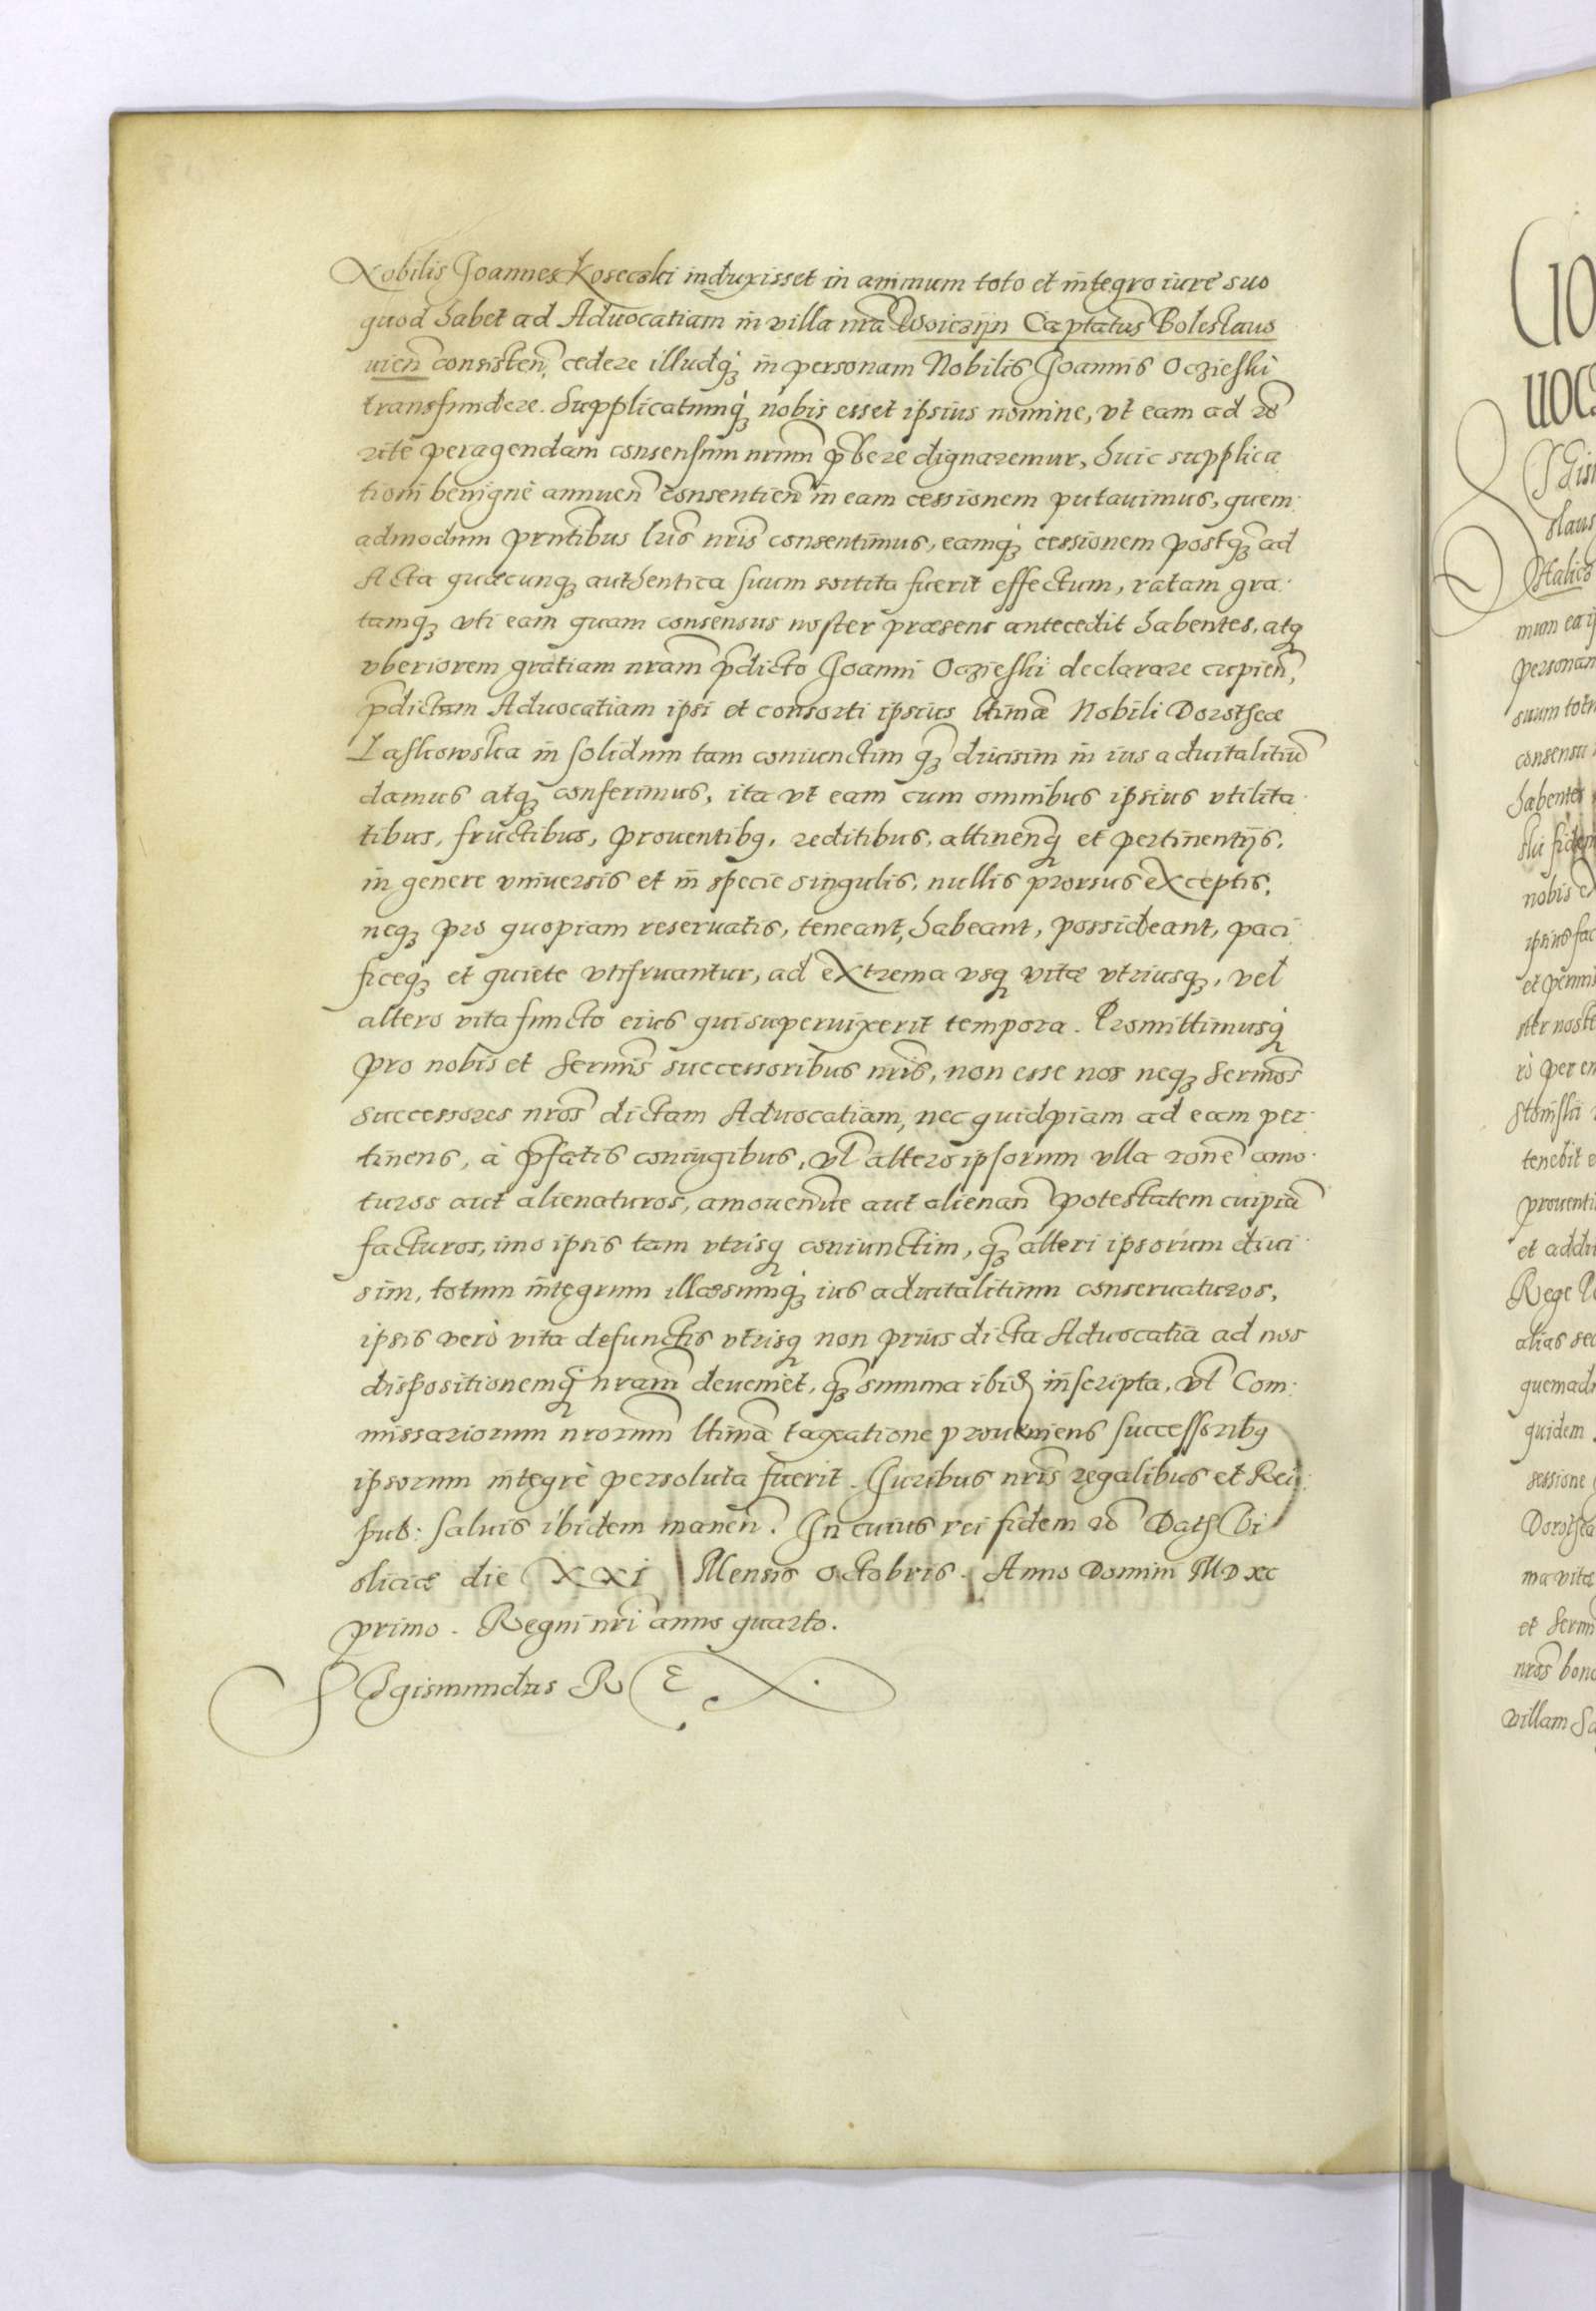 Nobilis Joannes Kosecski induxisset in animum toto et integro iure suo
quod habet ad Advocatiam in villa nrã Woiczijn Captatus Boleslaus
uień consisteń, cedere illudq́ȝ in personam Nobilis Joannis Oczieski
transfundere. Supplicatumq́ȝ nobis esset ipsius nomine, vt eam ad rẽ
rite peragendam consensum nrum̃ p̃bere dignaremur, huic supplica
tioni benignè annueñ consentieñ in eam cessionem putauimus, quem:
admodum prñtibus lrĩs nrĩs consentimus, eamq́ȝ cessionem postqȝ̃ ad
Acta quæcunqȝ authentica suum sortita fuerit effectum, ratam gra:
tamqȝ vti eam quam consensus noster præsens antecedit habentes, atqȝ
vberiorem gratiam nram̃ p̃dicto Joanni Oczieski declarare cupieñ,
p̃dictam Advocatiam ipsi et consorti ipsius ltimæ̃ Nobili Dorotheæ
Laskowska in solidum tam coniunctim qȝ̃ diuisim in ius aduitalitiũ
damus atqȝ conferimus, ita vt eam cum omnibus ipsius vtilita:
tibus, fructibus, prouentibꝯ, reditibus, attineñqȝ et pertinentijs,
in genere vniuersis et in specie singulis, nullis prorsus exceptis,
neqȝ pro quopiam reseruatis, teneant, habeant, possideant, paci
ficeqȝ et quiete vtifruantur, ad extrema vsqȝ vitæ vtriusqȝ, vel
altero vita functo eius qui superuixerit tempora. Promittimusq́ȝ
pro nobis et Sermĩs successoribus nrĩs, non esse nos neqȝ Sermõs
successores nrõs dictam Advocatiam, nec quidpiam ad eam per:
tinens, à p̃fatis coniugibus, vl̃ altero ipsorum vlla ronẽ amo:
turos aut alienaturos, amoueñve aut alienañ potestatem cuipiã
facturos, imo ipsis tam vtrisqȝ coniunctim, qȝ̃ alteri ipsorum diui:
sim, totum integrum illæsumq́ȝ ius aduitalitium conseruaturos,
ipsis verò vita defunctis vtrisqȝ non prius dicta Advocatia ad nos
dispositionemq́ȝ nram̃ deueniet, qȝ̃ summa ibid inscripta, vl̃ Com:
missariorum nrorum̃ ltimã taxatione proueniens successoribꝯ
ipsorum integrè persoluta fuerit. Juribus nrĩs regalibus et Rei:
pub: saluis ibidem maneñ. In cuius rei fidem rẽ Dath Vi
sliciæ die XXI Mensis Octobris. Anno Domini MDXC
primo. Regni nrĩ anno quarto.
Sigismundus Rex